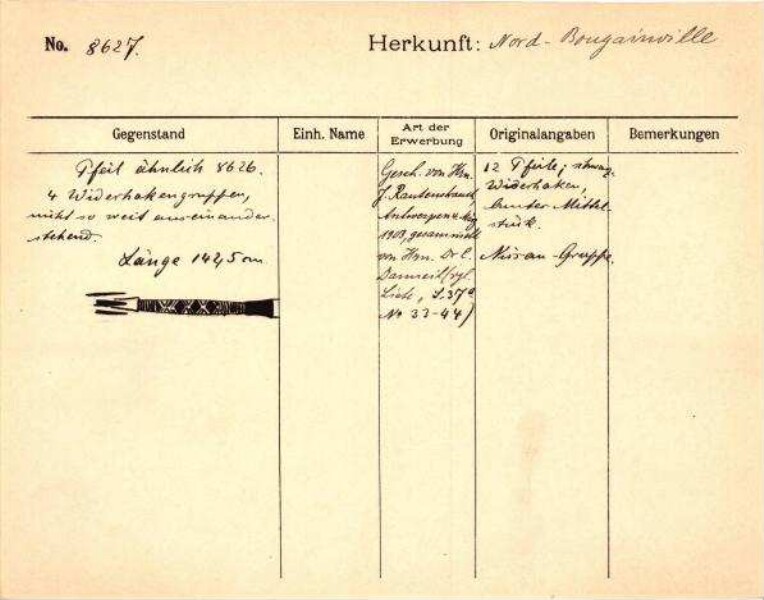 No. 8627.
Herkunft: Nord-Bougainville
Gegenstand
Einh. Name
Art der Erwerbung
Originalangaben
Bemerkungen
Pfeil ähnlich 8626.
4 Widerhakengruppen,
nicht so weit auseinander-
stehend.
Länge 142,5 cm
Gesch. von Hrn.
J. Rautenstrauch
Antwerpen
1903, gesammelt
von Hrn. Dr C.
Liste, S. 37
No 33-44)
12 Pfeile;
Widerhaken,
bunter Mittel-
stück.
Nissan-Gruppe.